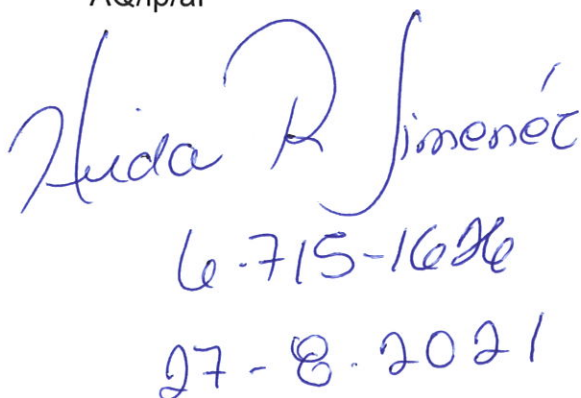 AQ/lp/af
Huida R Jimenéz
6-715-1626
27-8-2021